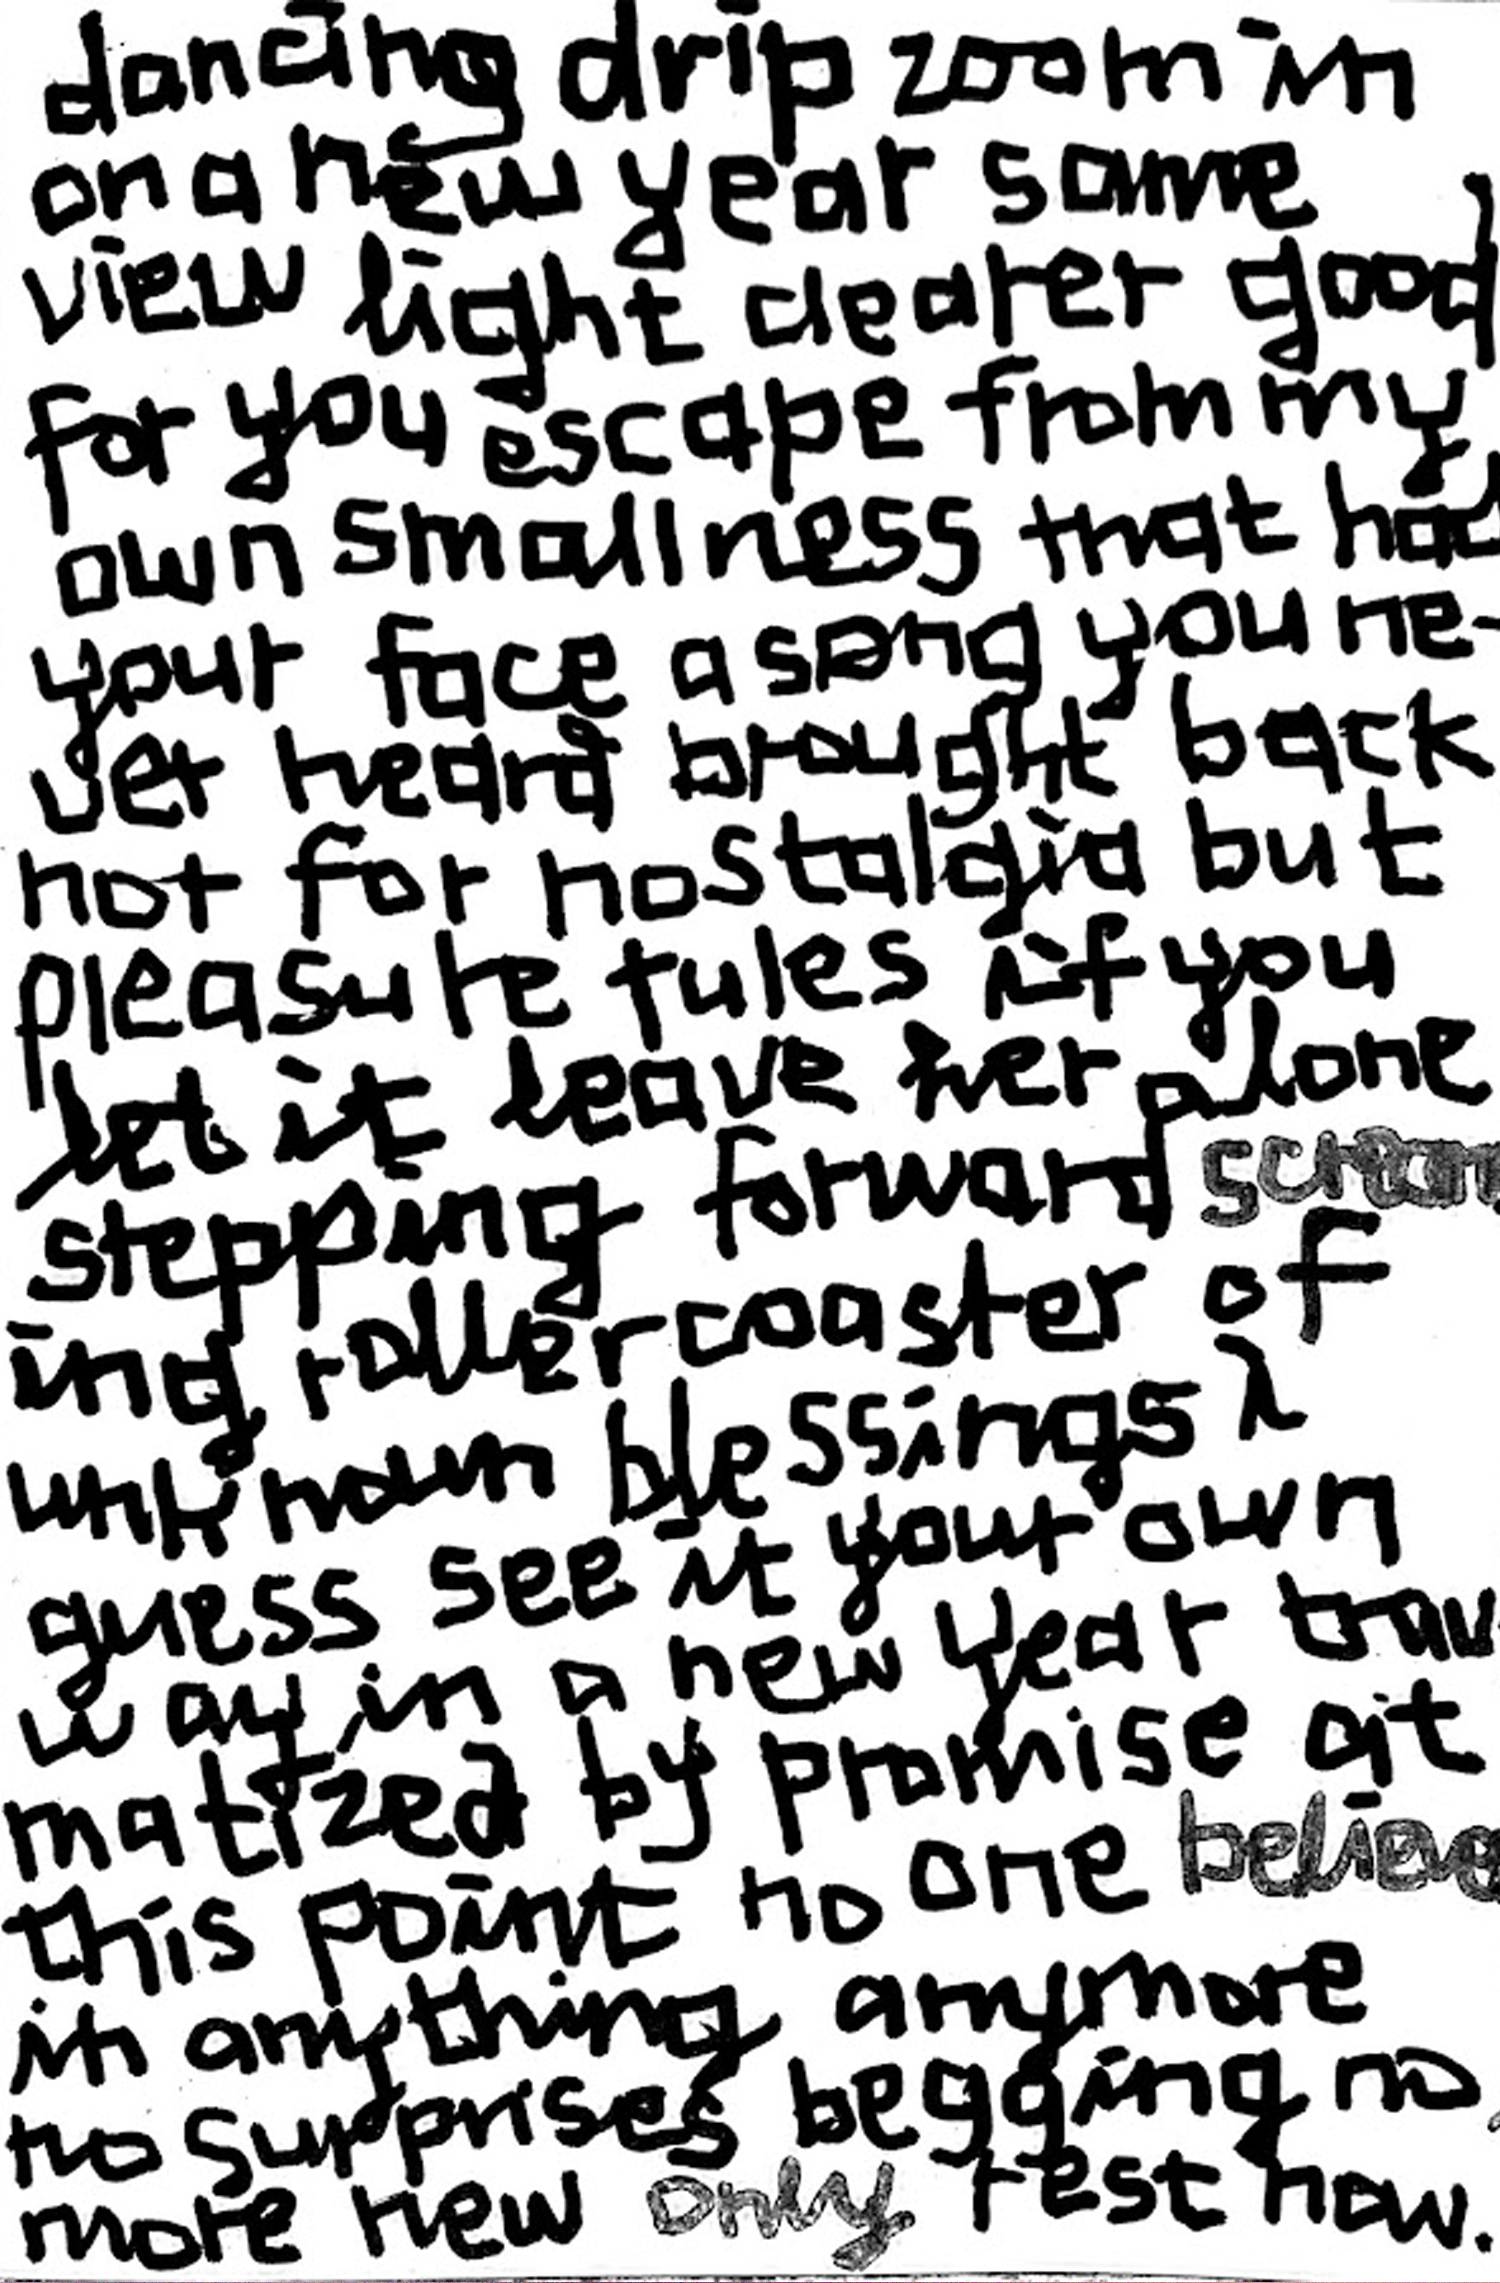 dancing drip zoom in
on a new year same
view light clearer good
for you escape from my
own smallness that had
your face a song you ne-
ver heard brought back
not for nostalgia but
pleasure rules if you
let it leave her alone
stepping forward scream
ing rollercoaster of
unknown blessings i
guess see it your own
way in a new year trau
matized by promise at
this point no one believe
in anything anymore
no surprises begging no
more new only rest now.